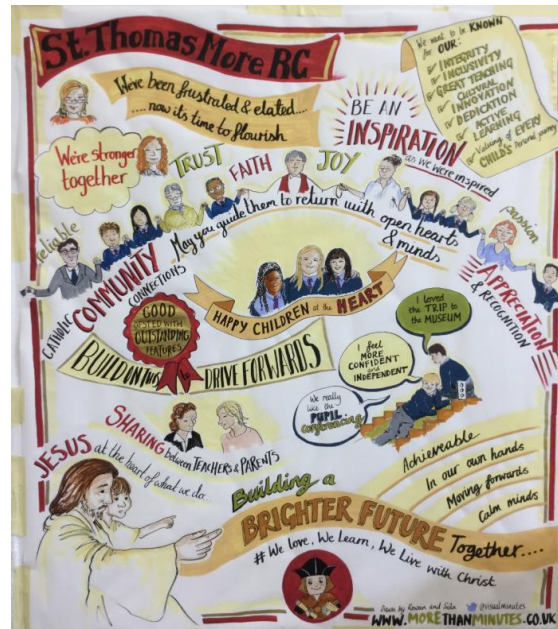 St. Thomas More RC
We've been frustrated & elated....
.... now its time to flourish
We want to be KNOWN
for OUR:
INTEGRITY
INCLUSIVITY
GREAT TEACHING
CULTURAL
INNOVATION
DEDICATION
ACTIVE
LEARNING
Valuing of EVERY
CHILD'S Personal journey
BE AN
INSPIRATION
as we were inspired
We're stronger
together
TRUST
FAITH
JOY
reliable
passion
May you guide them to return with open hearts
& minds
CATHOLIC COMMUNITY
CONNECTIONS
APPRECIATION
& RECOGNITION
HAPPY CHILDREN at the HEART
GOOD
OUTSTANDING
FEATURES
BUILD ON THIS to DRIVE FORWARDS
I loved
the TRIP to
the MUSEUM
I feel
MORE
CONFIDENT
and
INDEPENDENT
We really
like the
PUPIL
Conferencing
SHARING between TEACHERS & PARENTS
JESUS at the heart of what we do...
Achieveable
In our own hands
Moving forwards
Calm minds
Building a
BRIGHTER FUTURE Together....
# We love, We Learn, We Live with Christ
Drawn by Rowan and
@visualminutes
WWW.MORETHANMINUTES.CO.UK